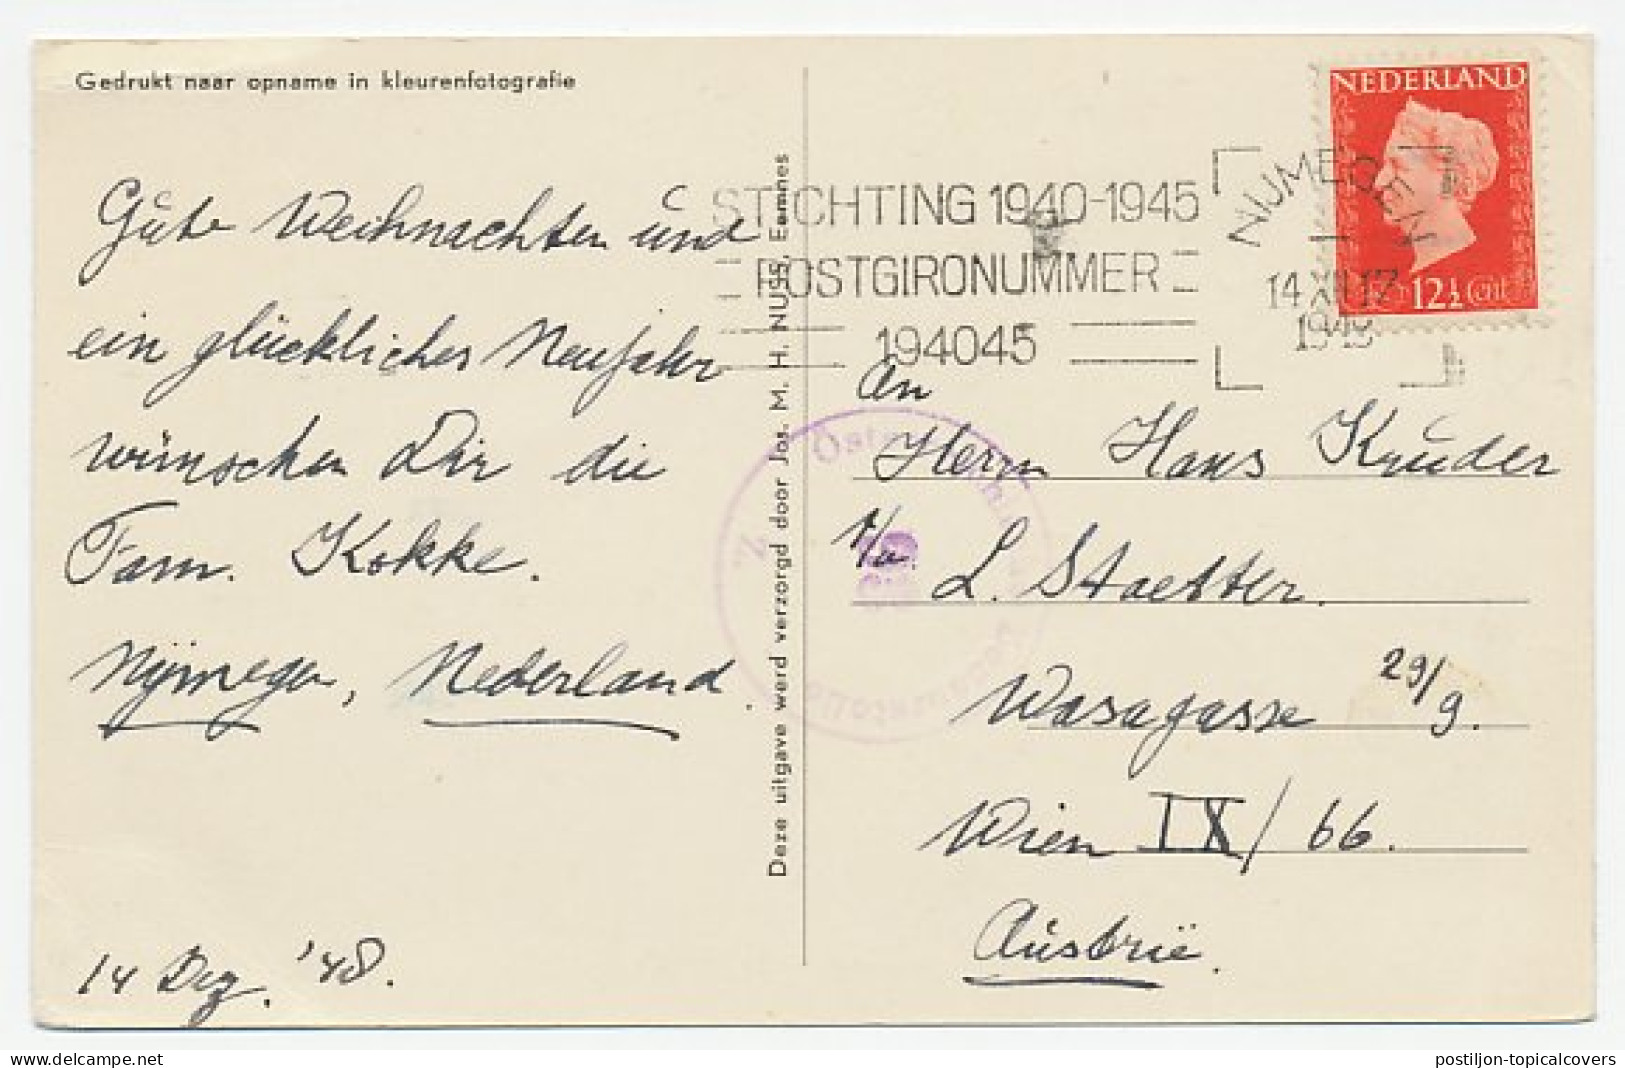 Gedrukt naar opname in kleurenfotografie
Gute Weihnachten und
ein glückliches Neujahr
wünschen Dir die
Fam. Kokke.
Nijmegen, Nederland
14 Dez. '48.
Deze uitgave werd verzorgd door Jos. M. H. NUSS, Eemnes
NEDERLAND
12½ Cnt
STICHTING 1940-1945
POSTGIRONUMMER
194045
NIJMEGEN
14 XII 17
1948
An
Herrn Hans Kruder
p/a. L. Stoetter.
Wasagasse 29/9.
Wien IX/66.
Austrië.
postiljon-topicalcovers
© delcampe.net